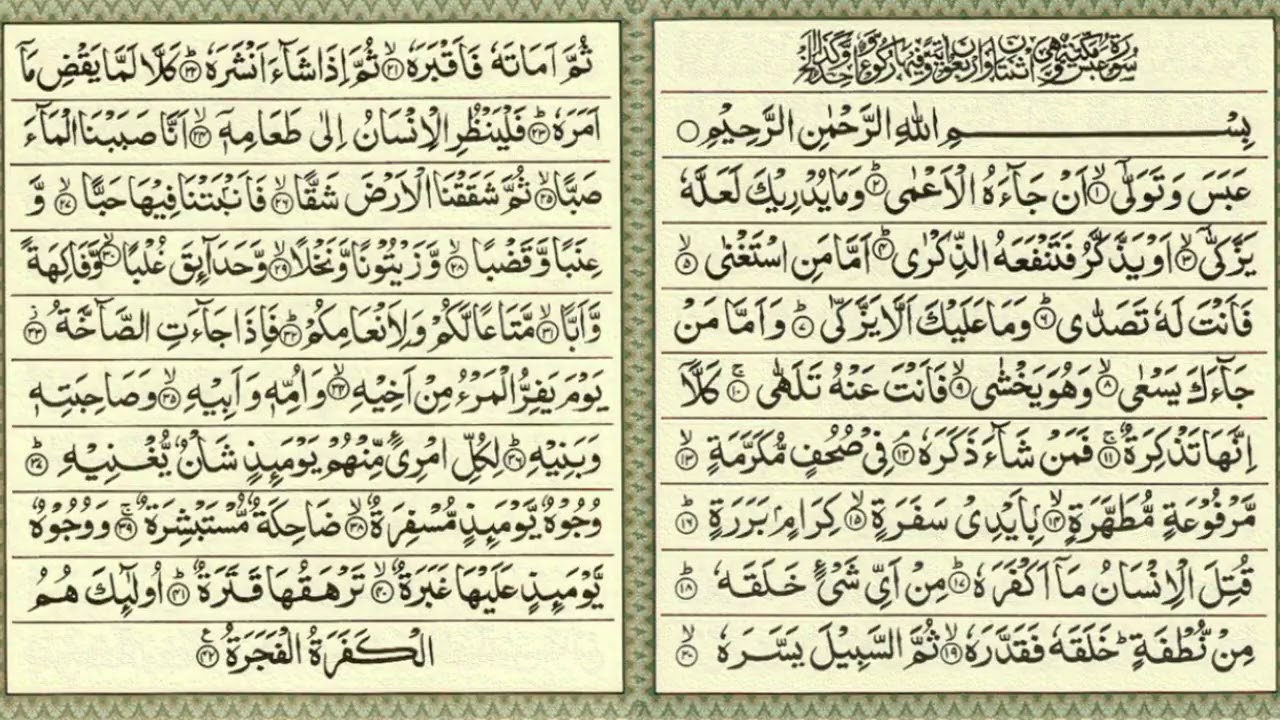 سورة عبس مكية وهي اثنتان واربعون اية وفيها ركوع واحد
بِسْمِ اللهِ الرَّحْمٰنِ الرَّحِيْمِ ○
عَبَسَ وَتَوَلّٰۤى ۙ﴿۱﴾ اَنْ جَآءَهُ الْاَعْمٰى ؕ﴿۲﴾ وَمَا يُدْرِيْكَ لَعَلَّهٗ
يَزَّكّٰۤى ۙ﴿۳﴾ اَوْ يَذَّكَّرُ فَتَنْفَعَهُ الذِّكْرٰى ؕ﴿۴﴾ اَمَّا مَنِ اسْتَغْنٰى ۙ﴿۵﴾
فَاَنْتَ لَهٗ تَصَدّٰى ؕ﴿۶﴾ وَمَا عَلَيْكَ اَلَّا يَزَّكّٰى ؕ﴿۷﴾ وَاَمَّا مَنْ
جَآءَكَ يَسْعٰى ۙ﴿۸﴾ وَهُوَ يَخْشٰى ۙ﴿۹﴾ فَاَنْتَ عَنْهُ تَلَهّٰى ۚ﴿۱۰﴾ كَلَّاۤ
اِنَّهَا تَذْكِرَةٌ ۚ﴿۱۱﴾ فَمَنْ شَآءَ ذَكَرَهٗ ۘ﴿۱۲﴾ فِيْ صُحُفٍ مُّكَرَّمَةٍ ۙ﴿۱۳﴾
مَّرْفُوْعَةٍ مُّطَهَّرَةٍۭ ۙ﴿۱۴﴾ بِاَيْدِيْ سَفَرَةٍ ۙ﴿۱۵﴾ كِرَامٍۭ بَرَرَةٍ ؕ﴿۱۶﴾
قُتِلَ الْاِنْسَانُ مَاۤ اَكْفَرَهٗ ؕ﴿۱۷﴾ مِنْ اَيِّ شَيْءٍ خَلَقَهٗ ؕ﴿۱۸﴾
مِنْ نُّطْفَةٍ ؕ خَلَقَهٗ فَقَدَّرَهٗ ۙ﴿۱۹﴾ ثُمَّ السَّبِيْلَ يَسَّرَهٗ ۙ﴿۲۰﴾
ثُمَّ اَمَاتَهٗ فَاَقْبَرَهٗ ۙ﴿۲۱﴾ ثُمَّ اِذَا شَآءَ اَنْشَرَهٗ ؕ﴿۲۲﴾ كَلَّا لَمَّا يَقْضِ مَاۤ
اَمَرَهٗ ؕ﴿۲۳﴾ فَلْيَنْظُرِ الْاِنْسَانُ اِلٰى طَعَامِهٖۤ ۙ﴿۲۴﴾ اَنَّا صَبَبْنَا الْمَآءَ
صَبًّا ۙ﴿۲۵﴾ ثُمَّ شَقَقْنَا الْاَرْضَ شَقًّا ۙ﴿۲۶﴾ فَاَنْۢبَتْنَا فِيْهَا حَبًّا ۙ﴿۲۷﴾ وَّ
عِنَبًا وَّقَضْبًا ۙ﴿۲۸﴾ وَّزَيْتُوْنًا وَّنَخْلًا ۙ﴿۲۹﴾ وَّحَدَآئِقَ غُلْبًا ۙ﴿۳۰﴾ وَّفَاكِهَةً
وَّاَبًّا ۙ﴿۳۱﴾ مَّتَاعًا لَّكُمْ وَلِاَنْعَامِكُمْ ؕ﴿۳۲﴾ فَاِذَا جَآءَتِ الصَّآخَّةُ ؗ﴿۳۳﴾
يَوْمَ يَفِرُّ الْمَرْءُ مِنْ اَخِيْهِ ۙ﴿۳۴﴾ وَاُمِّهٖ وَاَبِيْهِ ۙ﴿۳۵﴾ وَصَاحِبَتِهٖ
وَبَنِيْهِ ؕ﴿۳۶﴾ لِكُلِّ امْرِئٍ مِّنْهُمْ يَوْمَئِذٍ شَاْنٌ يُّغْنِيْهِ ؕ﴿۳۷﴾
وُجُوْهٌ يَّوْمَئِذٍ مُّسْفِرَةٌ ۙ﴿۳۸﴾ ضَاحِكَةٌ مُّسْتَبْشِرَةٌ ۚ﴿۳۹﴾ وَوُجُوْهٌ
يَّوْمَئِذٍ عَلَيْهَا غَبَرَةٌ ۙ﴿۴۰﴾ تَرْهَقُهَا قَتَرَةٌ ؕ﴿۴۱﴾ اُولٰٓئِكَ هُمُ
الْكَفَرَةُ الْفَجَرَةُ ۧ﴿۴۲﴾